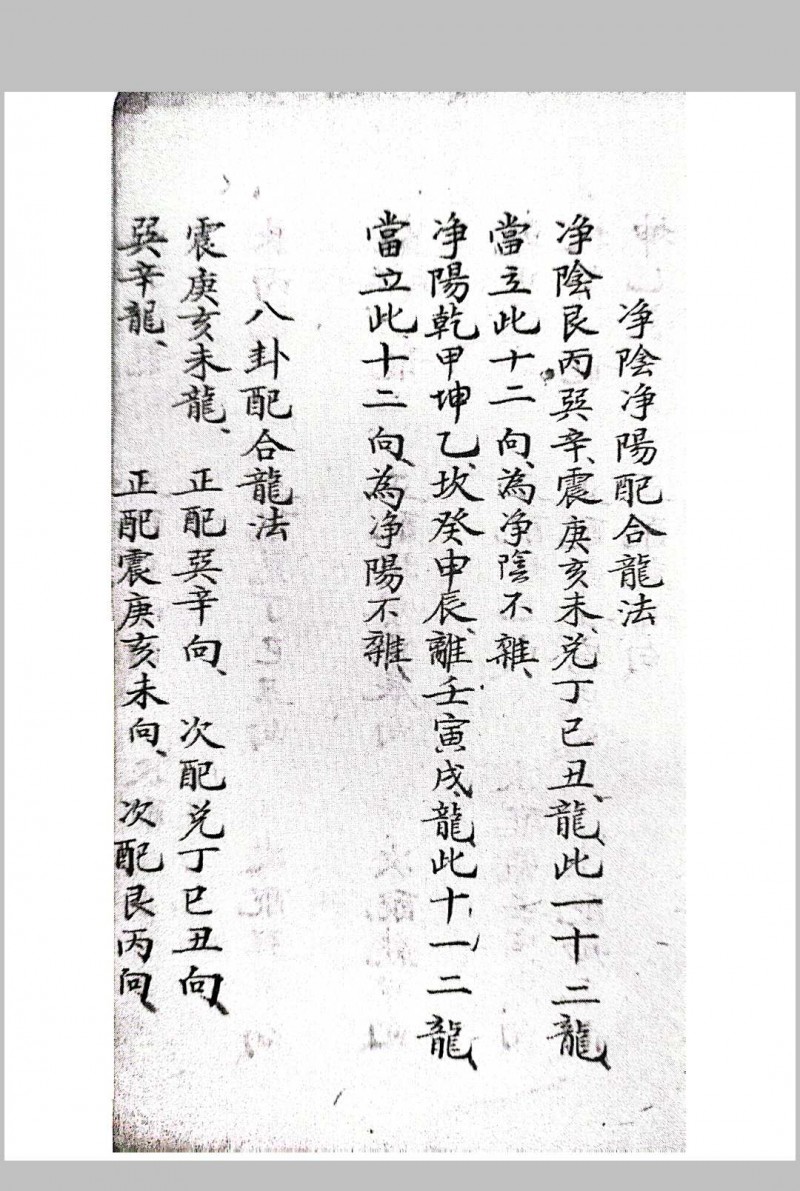 净陰净陽配合龍法
净陰艮丙巽辛、震庚亥未、兑丁巳丑、龍、此一十二龍、
當立此十二向、為净陰不雜、
净陽乾甲坤乙、坎癸申辰、離壬寅戌、龍、此十一二龍、
當立此十二向、為净陽不雜、
八卦配合龍法
震庚亥未龍、 正配巽辛向、 次配兑丁巳丑向、
巽辛龍、 正配震庚亥未向、 次配艮丙向、